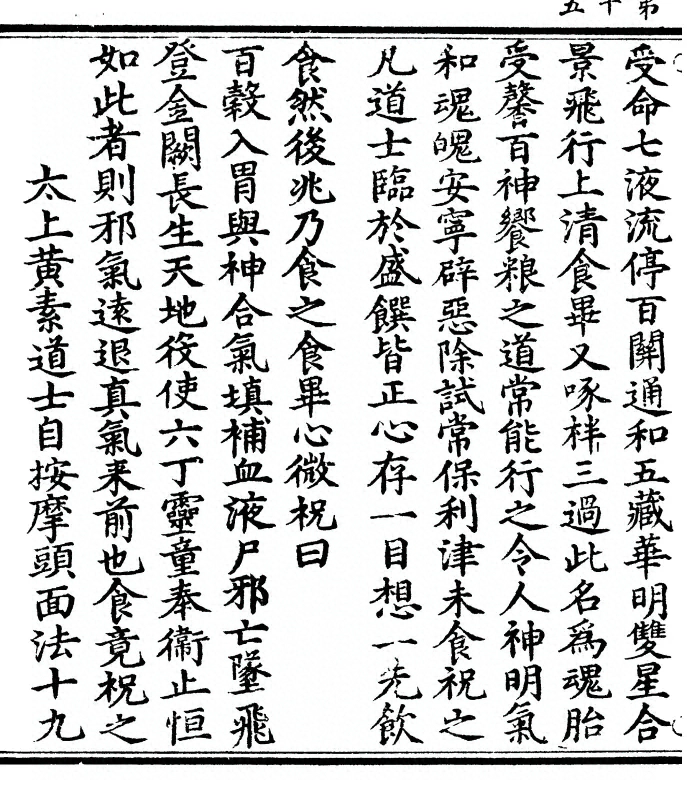 第十五
受命七液流停百關通和五藏華明雙星合
景飛行上清食畢又啄柈三過此名爲魂胎
受馨百神饗粮之道常能行之令人神明氣
和魂魄安寧辟惡除試常保利津未食祝之
凡道士臨於盛饌皆正心存一目想一先飲
食然後兆乃食之食畢心微祝曰
百穀入胃與神合氣填補血液尸邪亡墜飛
登金闕長生天地役使六丁靈童奉衞止恒
如此者則邪氣遠退真氣来前也食竟祝之
太上黄素道士自按摩頭面法十九